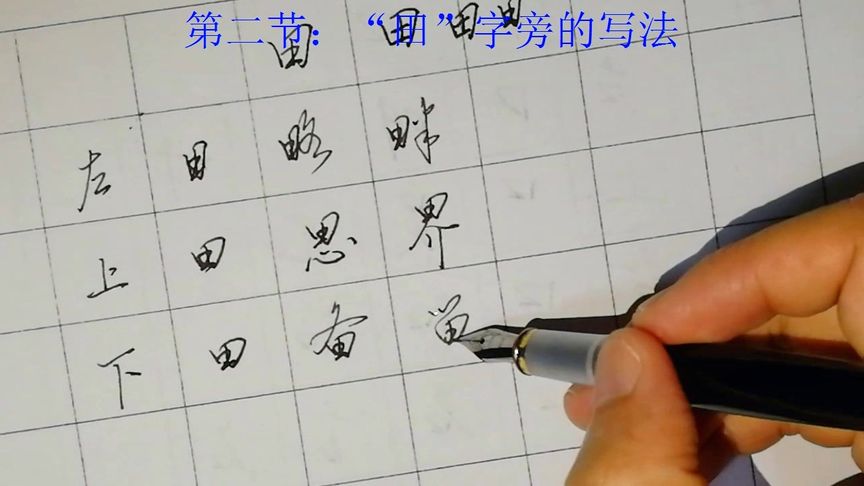 第二节：“田”字旁的写法
田 田 田 田
左 田 略 畔
上 田 思 界
下 田 备